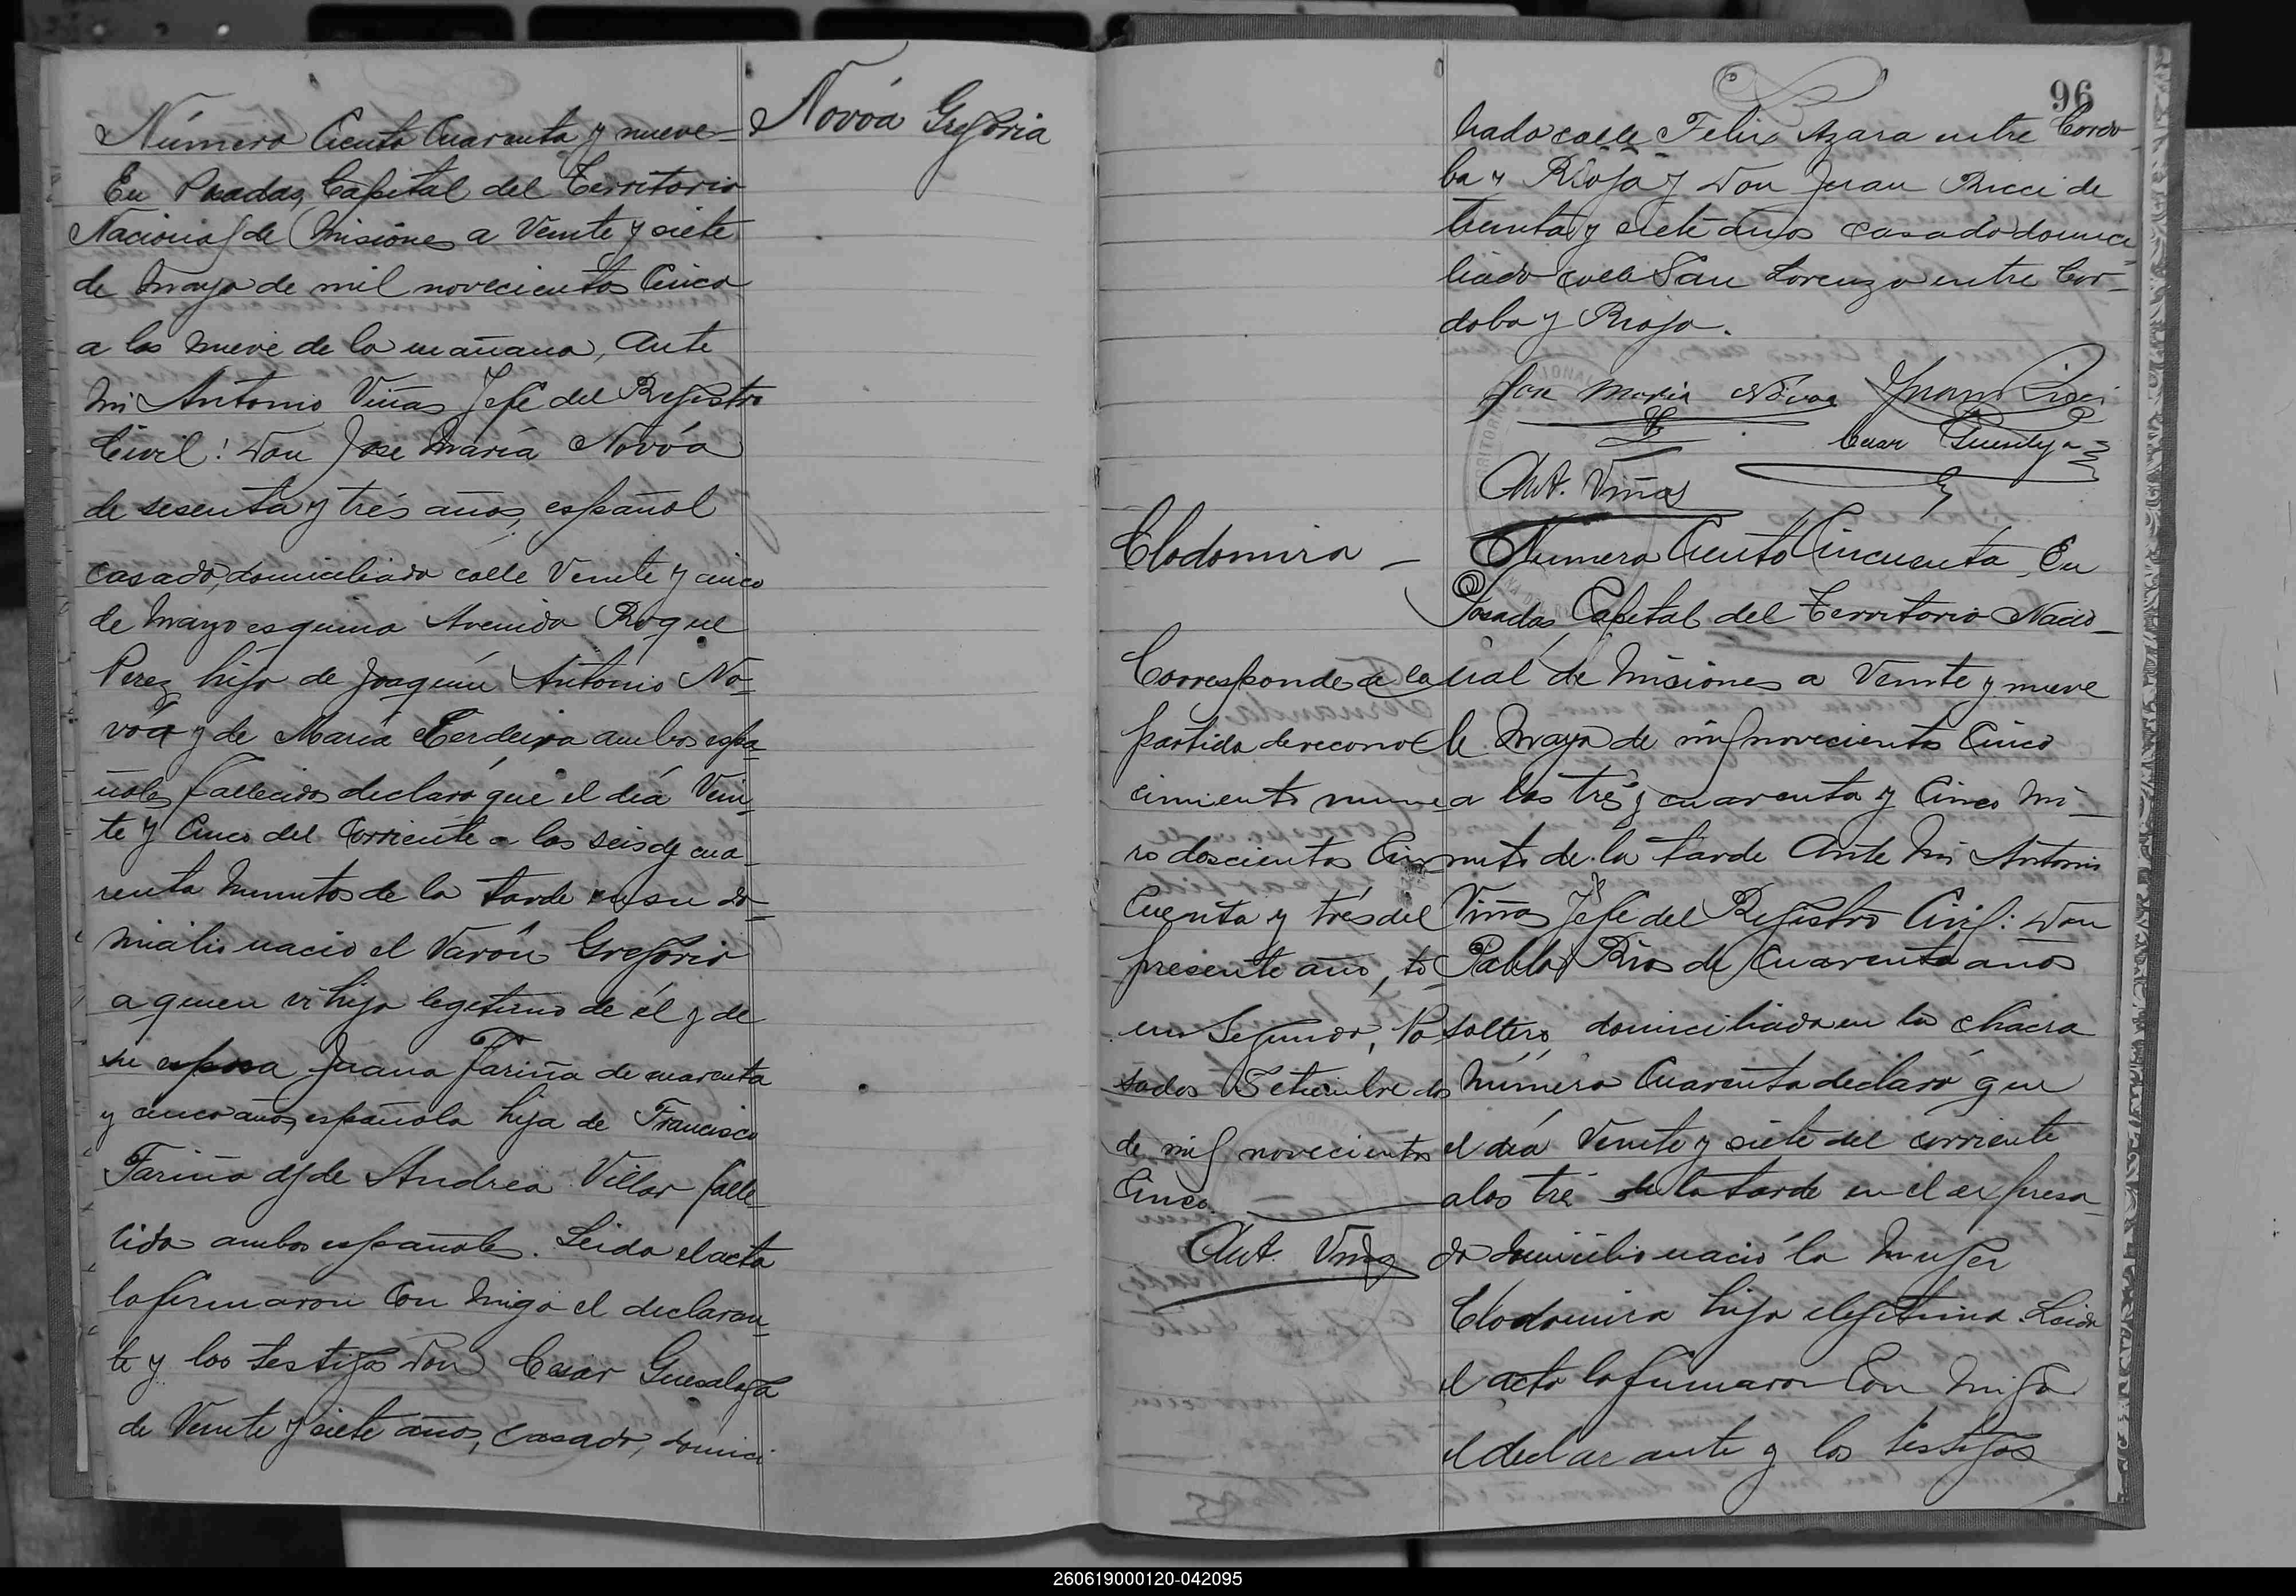 Número Ciento Cuarenta y nueve
En Posadas, Capital del Territorio
Nacional de Misiones a Veinte y siete
de Mayo de mil novecientos Cinco
a las nueve de la mañana, Ante
mi Antonio Viñas Jefe del Registro
Civil: Don Jose María Novóa
de sesenta y trés años, español
casado, domiciliado calle Veinte y cinco
de Mayo esquina Avenida Roque
Perez hijo de Joaquín Antonio No-
vóa y de María Cerdeira ambos espa-
ñoles fallecidos declaró que el día Vein-
te y Cinco del Corriente a las seis y cua-
renta minutos de la tarde en su do-
micilio nació el Varón Gregorio
a quien vi hijo legitimo de él y de
su esposa Juana Fariña de cuarenta
y cinco años, española hija de Francisco
Fariña y de Andrea Villar falle
cidos ambos españoles. Leida el acta
la firmaron Con migo el declaran-
te y los testigos Don Cesar Guesalaga
de Veinte y siete años, casado, domici
Novóa Gregoria
96
liado calle Felix Azara entre Cordo-
ba y Rioja y Don Juan Ricci de
treinta y siete años casado domici-
liado calle San Lorenzo entre Cor-
doba y Rioja.
Jose Maria Nóvoa Juan Ricci
Cesar
Ant. Viñas
Clodomira —
Numero Ciento Cincuenta En
Posadas Capital del Territorio Nacio-
nal de Misiones a Veinte y nueve
de Mayo de mil novecientos Cinco
a las tres y cuarenta y Cinco mi-
nutos de la tarde Ante Mi Antonio
Viñas Jefe del Registro Civil: Don
Pablo Rios de Cuarenta años
soltero domiciliado en la chacra
número Cuarenta declaró que
el día Veinte y siete del corriente
a las tré de la tarde en el expresa-
do domicilio nació la Mujer
Clodomira hija ilegitima. Leida
el acta la firmaron Con migo
el declarante y los testigos
Corresponde a la
partida de recono
cimiento nume
ro doscientos Cin
cuenta y trés del
presente año, to-
mo Segundo, Po
sadas Setiembre dos
de mil novecientos
Cinco.
Ant. Viñas
260619000120-042095